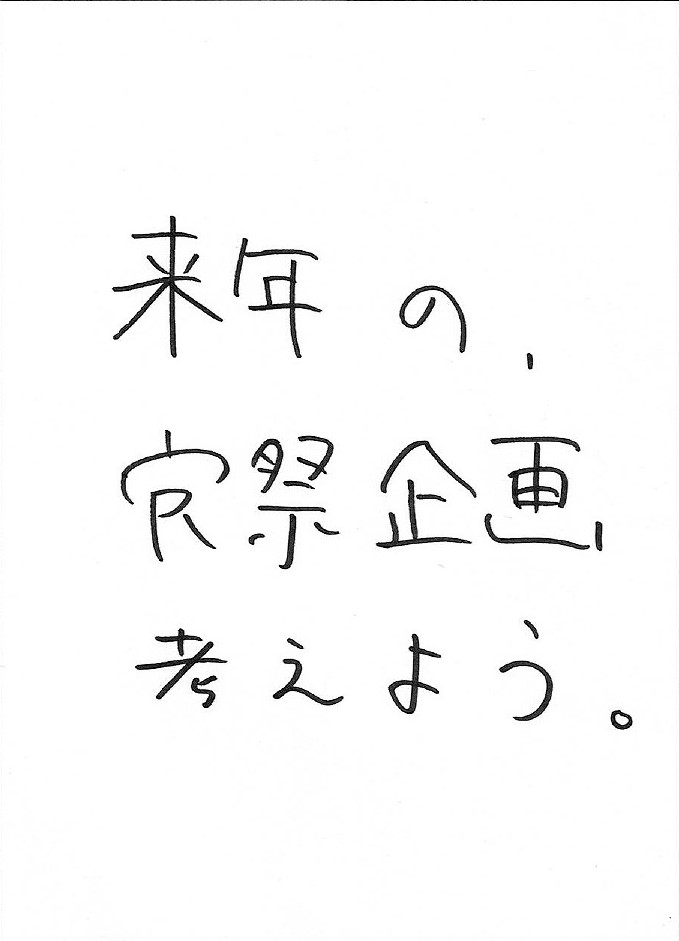 来年の、
寮祭企画、
考えよう。